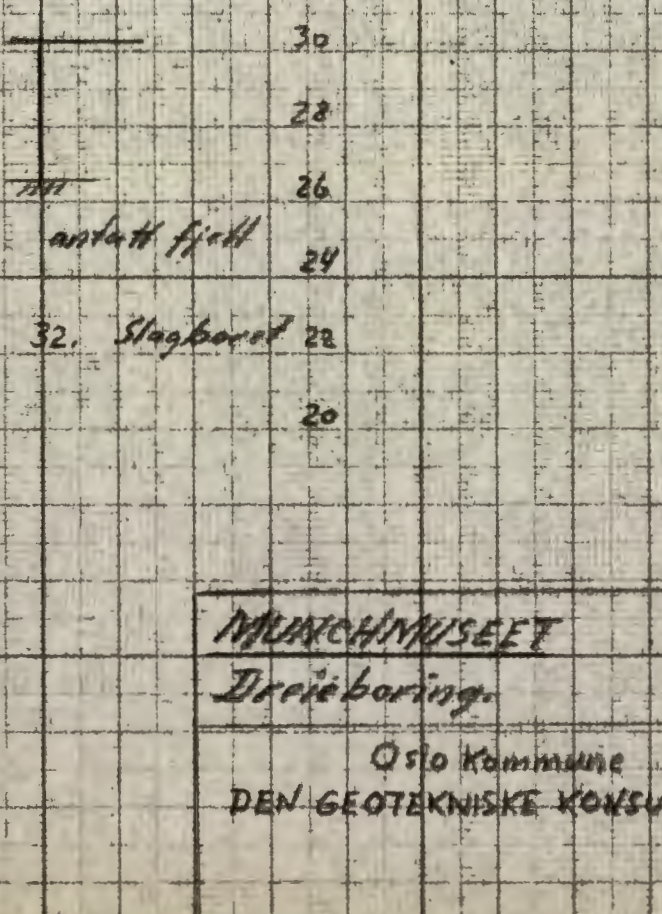 30
28
26
antatt fjell
24
32. Slagboret 22
20
MUNCHMUSEET
Dreieboring.
Oslo Kommune
DEN GEOTEKNISKE KONSU